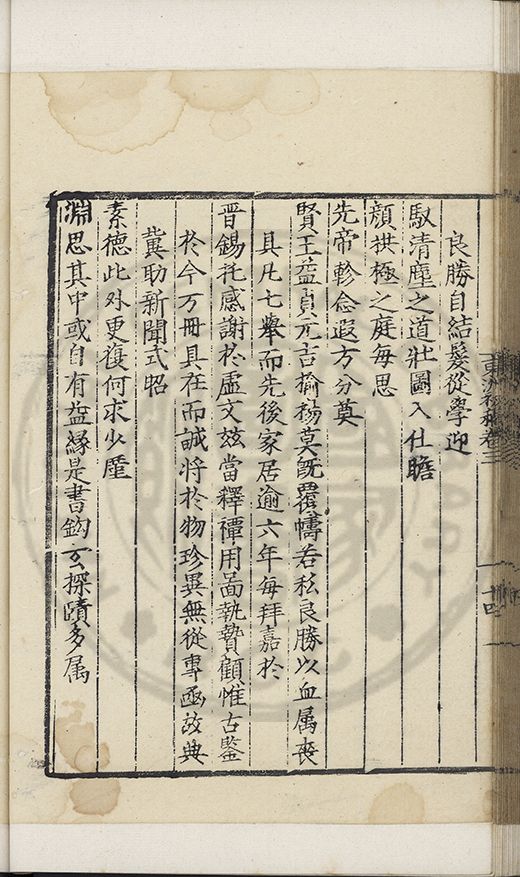 良勝自結髮從學迎
馭清塵之道壯圖入仕瞻
顏拱極之庭每思
先帝軫念遐方分奠
賢王益貞元吉揄揚莫既覆幬若私良勝以血属喪
具凡七舉而先後家居逾六年每拜嘉於
晉錫托感謝於虛文玆當釋禫用啚執贄顧惟古鑒
於今万冊具在而誠將於物珍異無從專函故典
冀助新聞式昭
素德此外更復何求少塵
淵思其中或自有益縁是書鈎玄探賾多属
十四